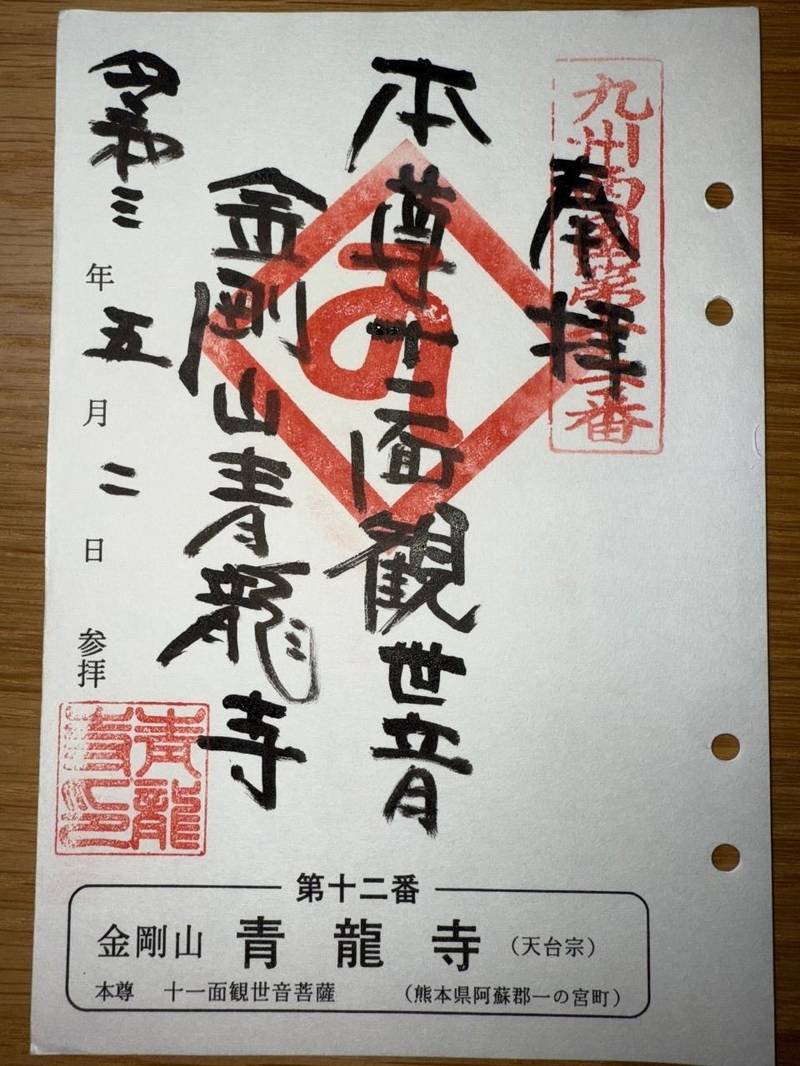 九州西国第十二番
奉拝
本尊十一面観世音
金剛山青龍寺
令和三年五月二日参拝
青龍
寺印
第十二番
金剛山 青龍寺 (天台宗)
本尊 十一面観世音菩薩 (熊本県阿蘇郡一の宮町)